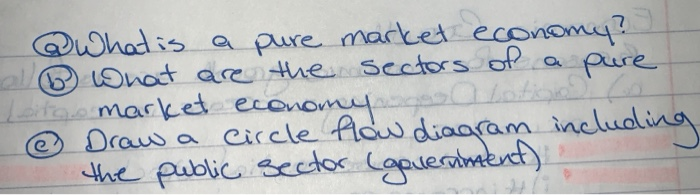 (a) What is a pure market economy?
(b) What are the sectors of a pure
market economy
(c) Draw a circle flow diagram including
the public sector (government)